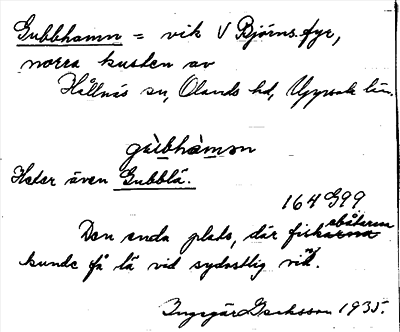 Gubbhamn = vik V Björns fyr,
norra kusten av
Hållnäs sn, Olands hd, Uppsala län.
Heter även Gubblä.
164 G99
Den enda plats, där fiskarna båtarna
kunde få lä vid sydostlig vind.
Ingegär Eriksson 1935.